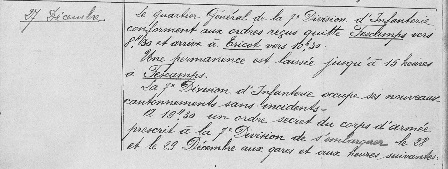 27 Décembre
Le quartier Général de la 7e Division d'Infanterie
conforment aux ordres reçus quitte Fescamps vers
8h30 et arrive à Tricot vers 10h30.
Une permanence est laissée jusqu'à 15 heures
à Fescamps.
La 7e Division d'Infanterie occupe ses nouveaux
cantonnements sans incidents.
A 19h30 un ordre secret du corps d'armée
prescrit à la 7e Division de s'embarquer le 28
et le 29 Décembre aux gares et aux heures suivantes.